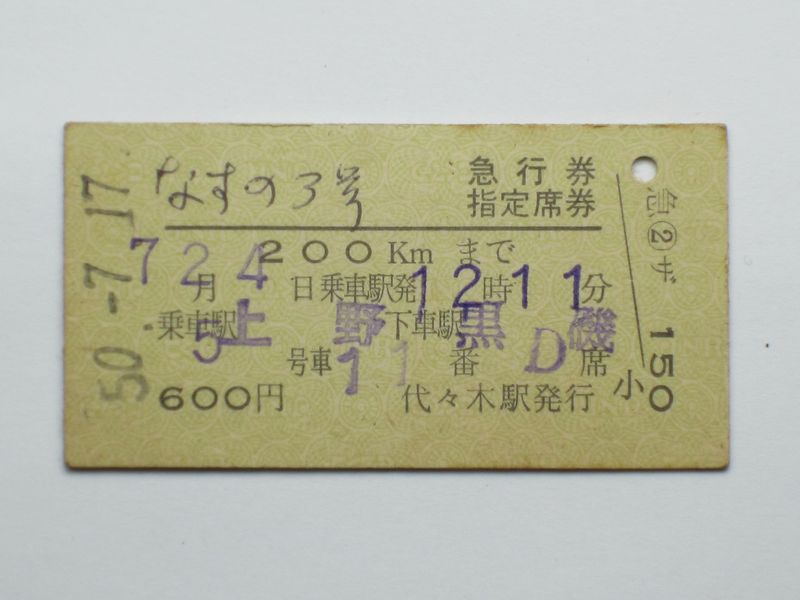 50-7.17
なすの3号
急行券
指定席券
200Kmまで
7月24日乗車駅発12時11分
乗車駅上野下車駅黒磯
5号車11番D席
600円 代々木駅発行
急②ザ
小150